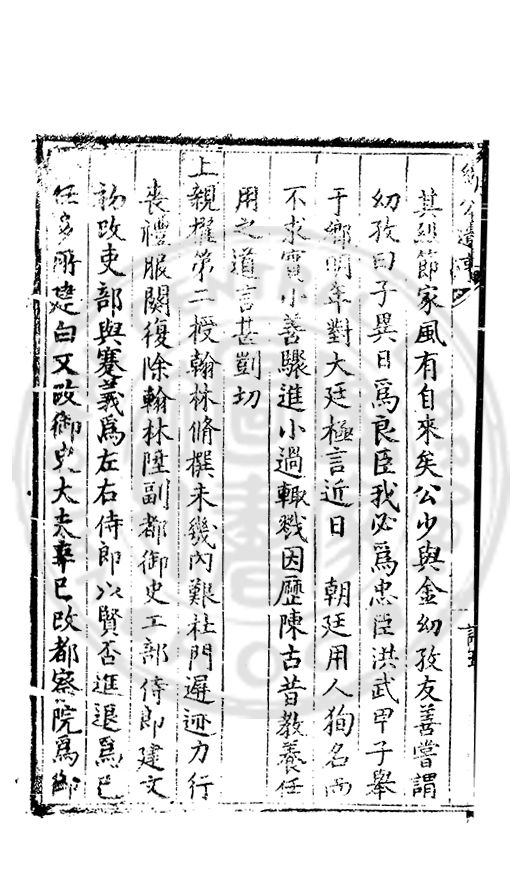 其烈節家風有自來矣公少與金幼孜友善嘗謂
幼孜曰子異日爲良臣我必爲忠臣洪武甲子舉
于鄉明年對大廷極言近日　朝廷用人狥名而
不求實小善驟進小過輒戮因歷陳古昔教養任
用之道言甚剴切
上親擢第二授翰林脩撰未幾內艱杜門遲迹力行
喪禮服闋復除翰林陞副都御史工部侍郎建文
初改吏部與蹇義爲左右侍郎以賢否進退爲己
任多所建白又改御史大夫辛巳改都察院爲御